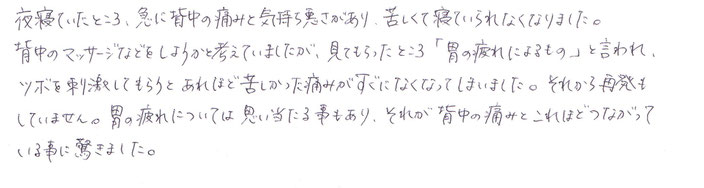 夜寝ていたところ、急に背中の痛みと気持ち悪さがあり、苦しくて寝ていられなくなりました。
背中のマッサージなどをしようかと考えていましたが、見てもらったところ「胃の疲れによるもの」と言われ、
ツボを刺激してもらうとあれほど苦しかった痛みがすぐになくなってしまいました。それから再発も
していません。胃の疲れについては思い当たる事もあり、それが背中の痛みとこれほどつながって
いる事に驚きました。